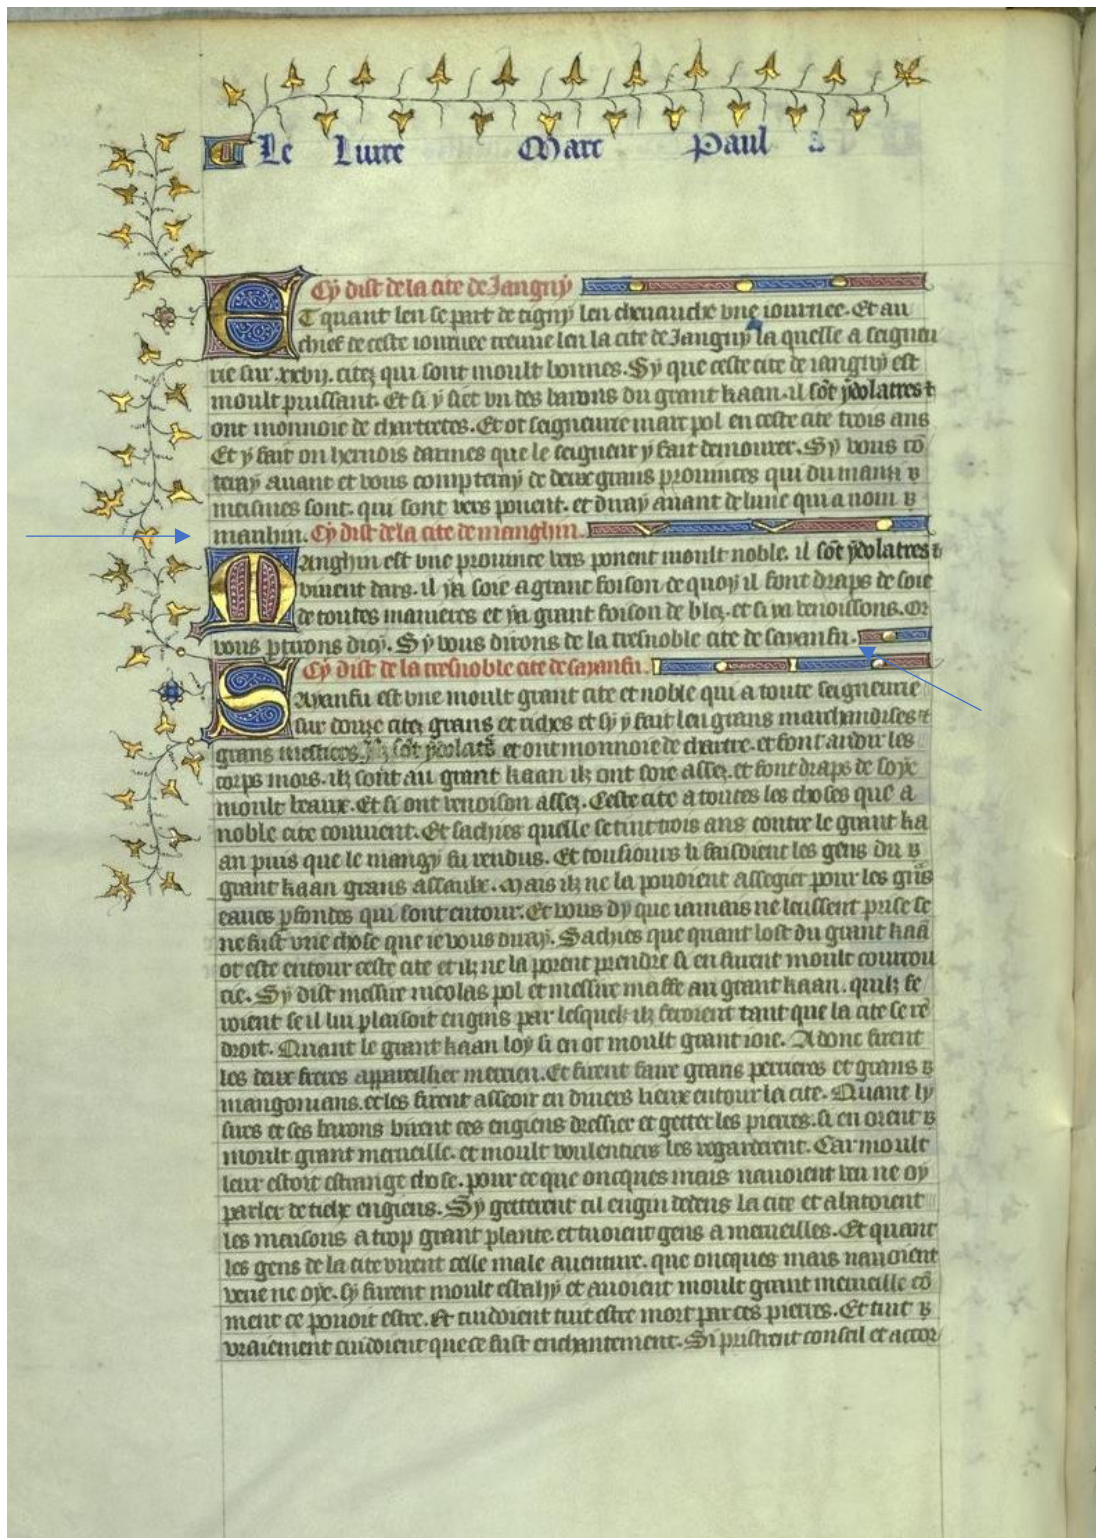 Le Liure Marc Paul
Cy dist de la cite de Jangny
Et quant len se part de tigny len cheuauche vne iournee. Et au
chief de ceste iournee treuue len la cite de Jangny la quelle a seigneu
rie sur .xxvij. citez qui sont moult bonnes. Sy que ceste cite de iangny est
moult puissant. Et si y siet vn des barons du grant kaan. il sōt ydolatres ⁊
ont monnoie de chartretes. Et ot seigneurie marc pol en ceste cite trois ans
Et y fait on hernois darmes que le seigneur y fait demourer. Sy vous cō
teray auant et vous compteray de deux grans prouinces qui du mangy
meismes sont. qui sont vers ponent. et diray auant de lune qui a nom
manhin. Cy dist de la cite de manghin.
Manghin est vne prouince vers ponent moult noble. il sōt ydolatres ⁊
viuent dars. il ya soie a grant foison de quoy il font draps de soie
de toutes manieres et ya grant foison de blez. et si ya venoissons. Or
vous ꝑtirons dicy. Sy vous dirons de la tresnoble cite de sayanfu.
Cy dist de la tresnoble cite de sayanfu.
Sayanfu est vne moult grant cite et noble qui a toute seigneurie
sur douze citez grans et riches et sy y fait len grans marchandises ⁊
grans mestiers. Ilz sōt ydolatr̄s et ont monnoie de chartre. et font ardoir les
corps mors. ilz sont au grant kaan ilz ont soie assez. et font draps de soye
moult beaux. Et si ont venoison assez. Ceste cite a toutes les choses que a
noble cite conuient. Et sachies quelle se tint trois ans contre le grant ka
an puis que le mangy fu rendus. Et tousiours li faisoient les gens du
grant kaan grans assaulx. Mais ilz ne la pouoient assegier pour les grās
eaues ꝑfondes qui sont entour. Et vous dy que iamais ne leussent prise se
ne fust vne chose que ie vous diray. Sachies que quant lost du grant kaā
ot este entour ceste cite et ilz ne la porent prendre si en furent moult courrou
cie. Sy dist messire nicolas pol et messire maffe au grant kaan. quilz fe
roient se il lui plaisoit engins par lesquelz ilz feroient tant que la cite se rē
droit. Quant le grant kaan loy si en ot moult grant ioie. Adonc firent
les deux freres appareillier merrien. Et firent faire grans perrieres et grans
mangonians. et les firent asseoir en diuers lieux entour la cite. Quant ly
sires et ses barons virent ces engiens dressier et getter les pierres. si en orent
moult grant merueille. et moult voulentiers les regarderent. Car moult
leur estoit estrange chose. pour ce que oncques mais nauoient veu ne oy
parler de tielx engiens. Sy getterent cil engin dedens la cite et abatoient
les mesons a trop grant plante. et tuoient gens a merueilles. Et quant
les gens de la cite virent celle male auenture. que oncques mais nauoient
veue ne oye. sy furent moult esbahy et auoient moult grant merueille cō
ment ce pouoit estre. Et cuidoient tuit estre mort par ces pierres. Et tuit
vraiement cuidoient que ce fust enchantement. Si pristrent conseil et accor